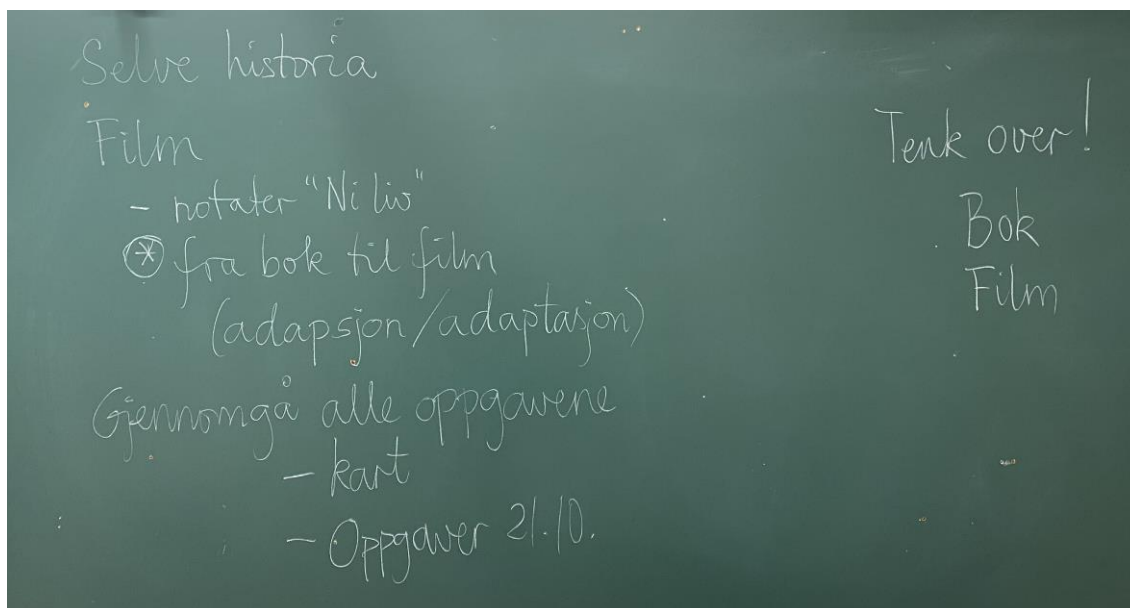 Selve historia
Film
- notater "Ni liv"
⊛ fra bok til film
(adapsjon/adaptasjon)
Gjennomgå alle oppgavene
- kart
- Oppgaver 21.10.
Tenk over!
Bok
Film